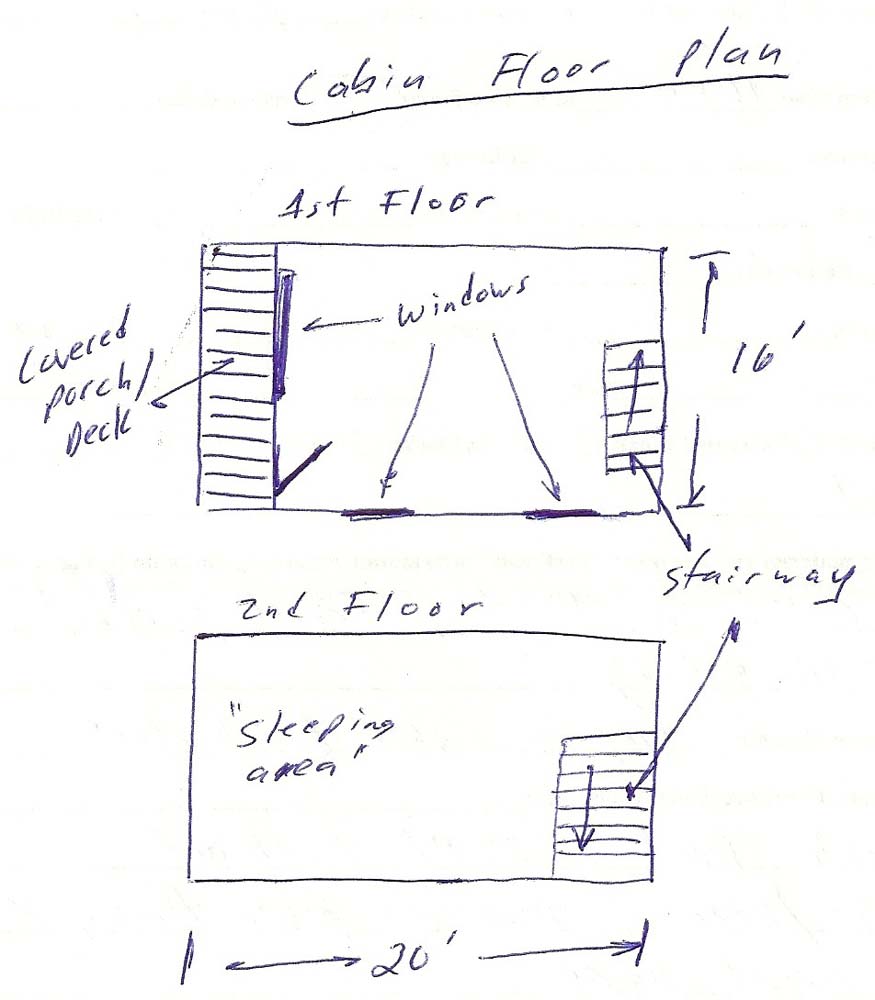 Cabin Floor Plan
1st Floor
Windows
Covered
Porch/
Deck
16'
Stairway
2nd Floor
"Sleeping
area"
20'